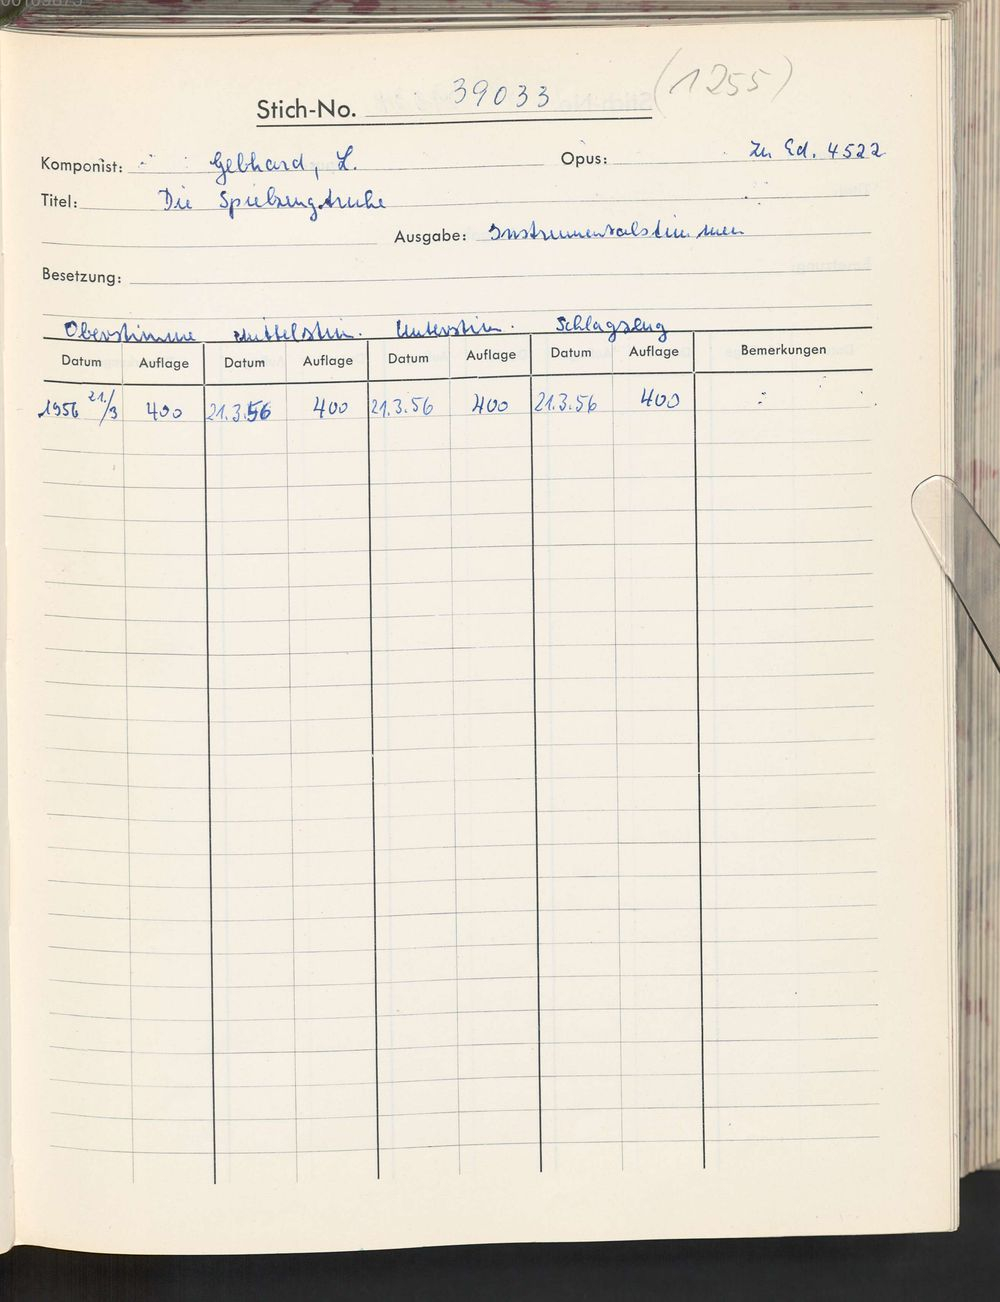 Stich-No. 39033 (1255)
Komponist: Gebhard, L. Opus: Zu Ed. 4522
Titel: Die Spielzeugtruhe
Ausgabe: Instrumentalstimmen
Besetzung:
Oberstimme Mittelstim. Unterstim. Schlagzeug
Datum Auflage Datum Auflage Datum Auflage Datum Auflage Bemerkungen
1956 21./3 400 21.3.56 400 21.3.56 400 21.3.56 400